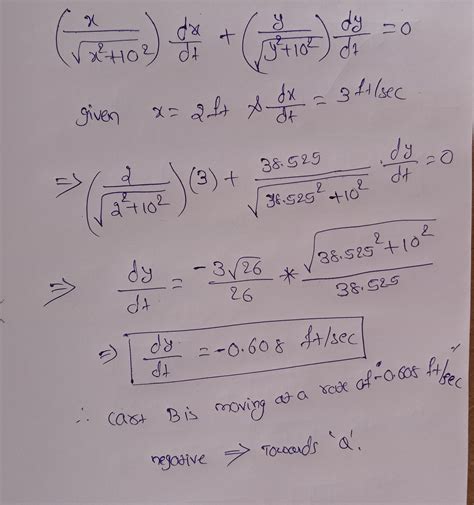 (x/√(x²+10²)) dx/dt + (y/√(y²+10²)) dy/dt = 0
given x = 2ft & dx/dt = 3 ft/sec
⇒ (2/√(2²+10²)) (3) + 38.525/√(38.525²+10²) · dy/dt = 0
⇒ dy/dt = -3√26/26 * √(38.525²+10²)/38.525
⇒ dy/dt = -0.608 ft/sec
∴ Cart B is moving at a rate of -0.608 ft/sec
negative ⇒ Towards 'Q'.